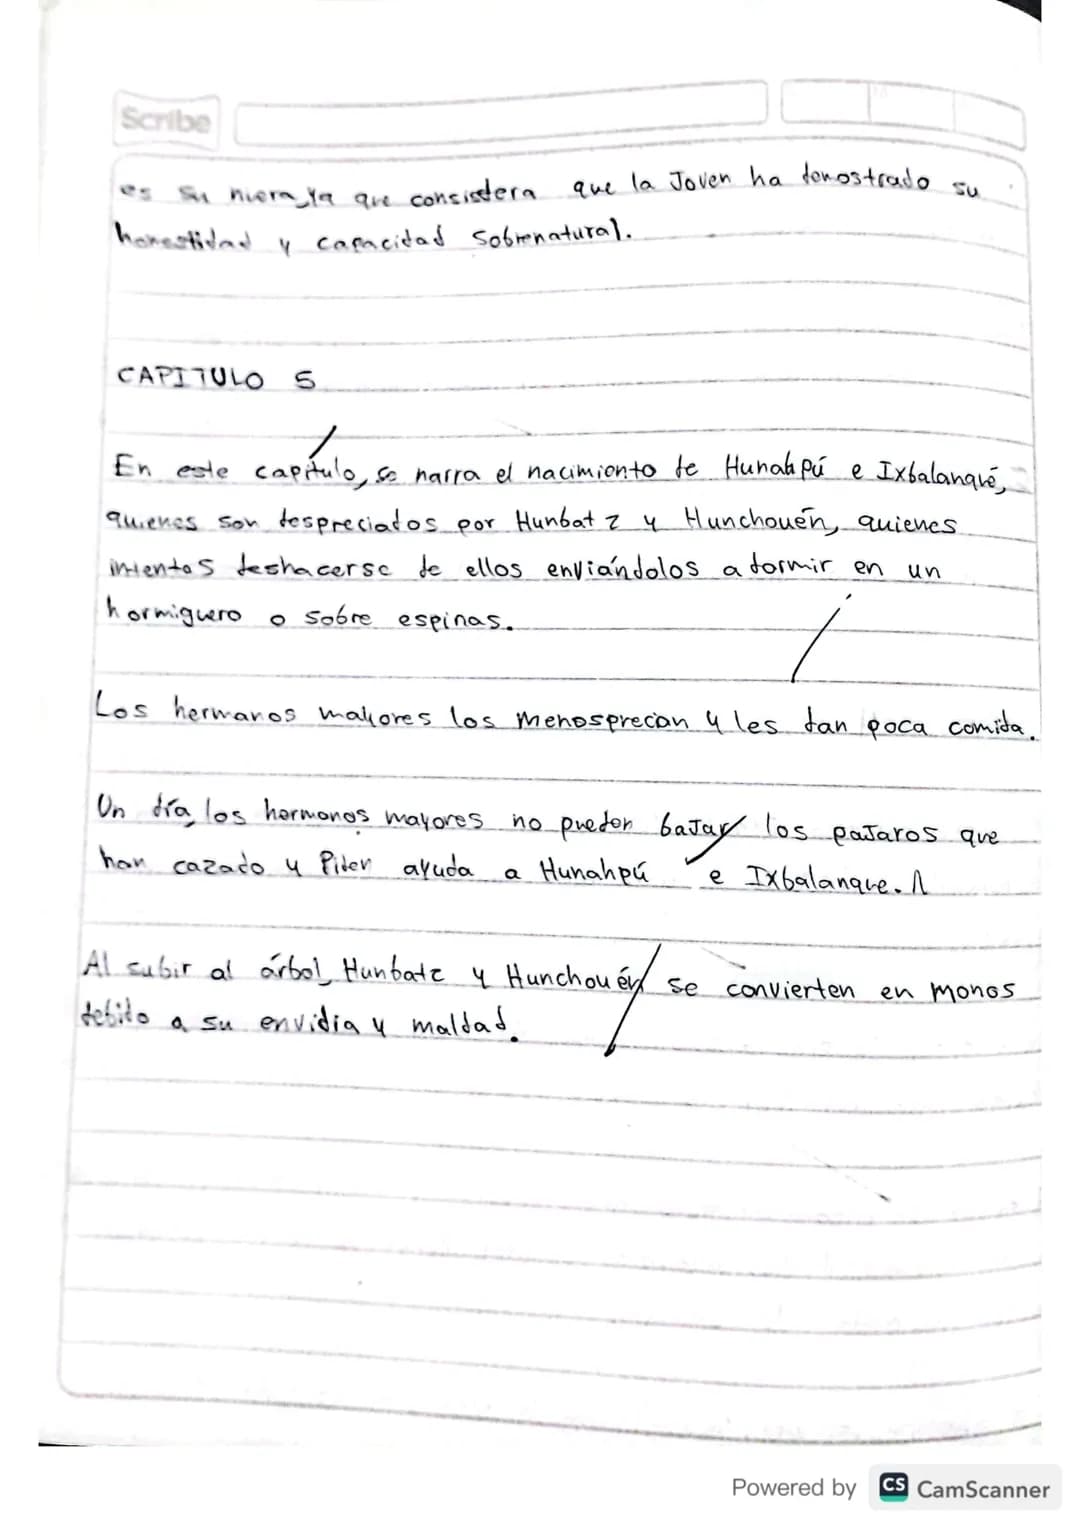 Scribe
es su nuera, ya que consistera que la Joven ha demostrado su
honestidad y capacidad sobrenatural.
CAPITULO 5
En este capítulo, se narra el nacimiento de Hunahpú e Ixbalanqué,
quienes son despreciados por Hunbatz y Hunchouén, quienes
intentas deshacerse de ellos enviándolos a dormir en un
hormiguero o sobre espinas.
Los hermanos mayores los menosprecian y les dan poca comida.
Un día, los hermanos mayores no pueden baJar los paJaros que
han cazado y Piden ayuda a Hunahpú e Ixbalanque.
Al subir al árbol, Hunbatz y Hunchouén se convierten en monos
debido a su envidia y maldad.
Powered by CS CamScanner